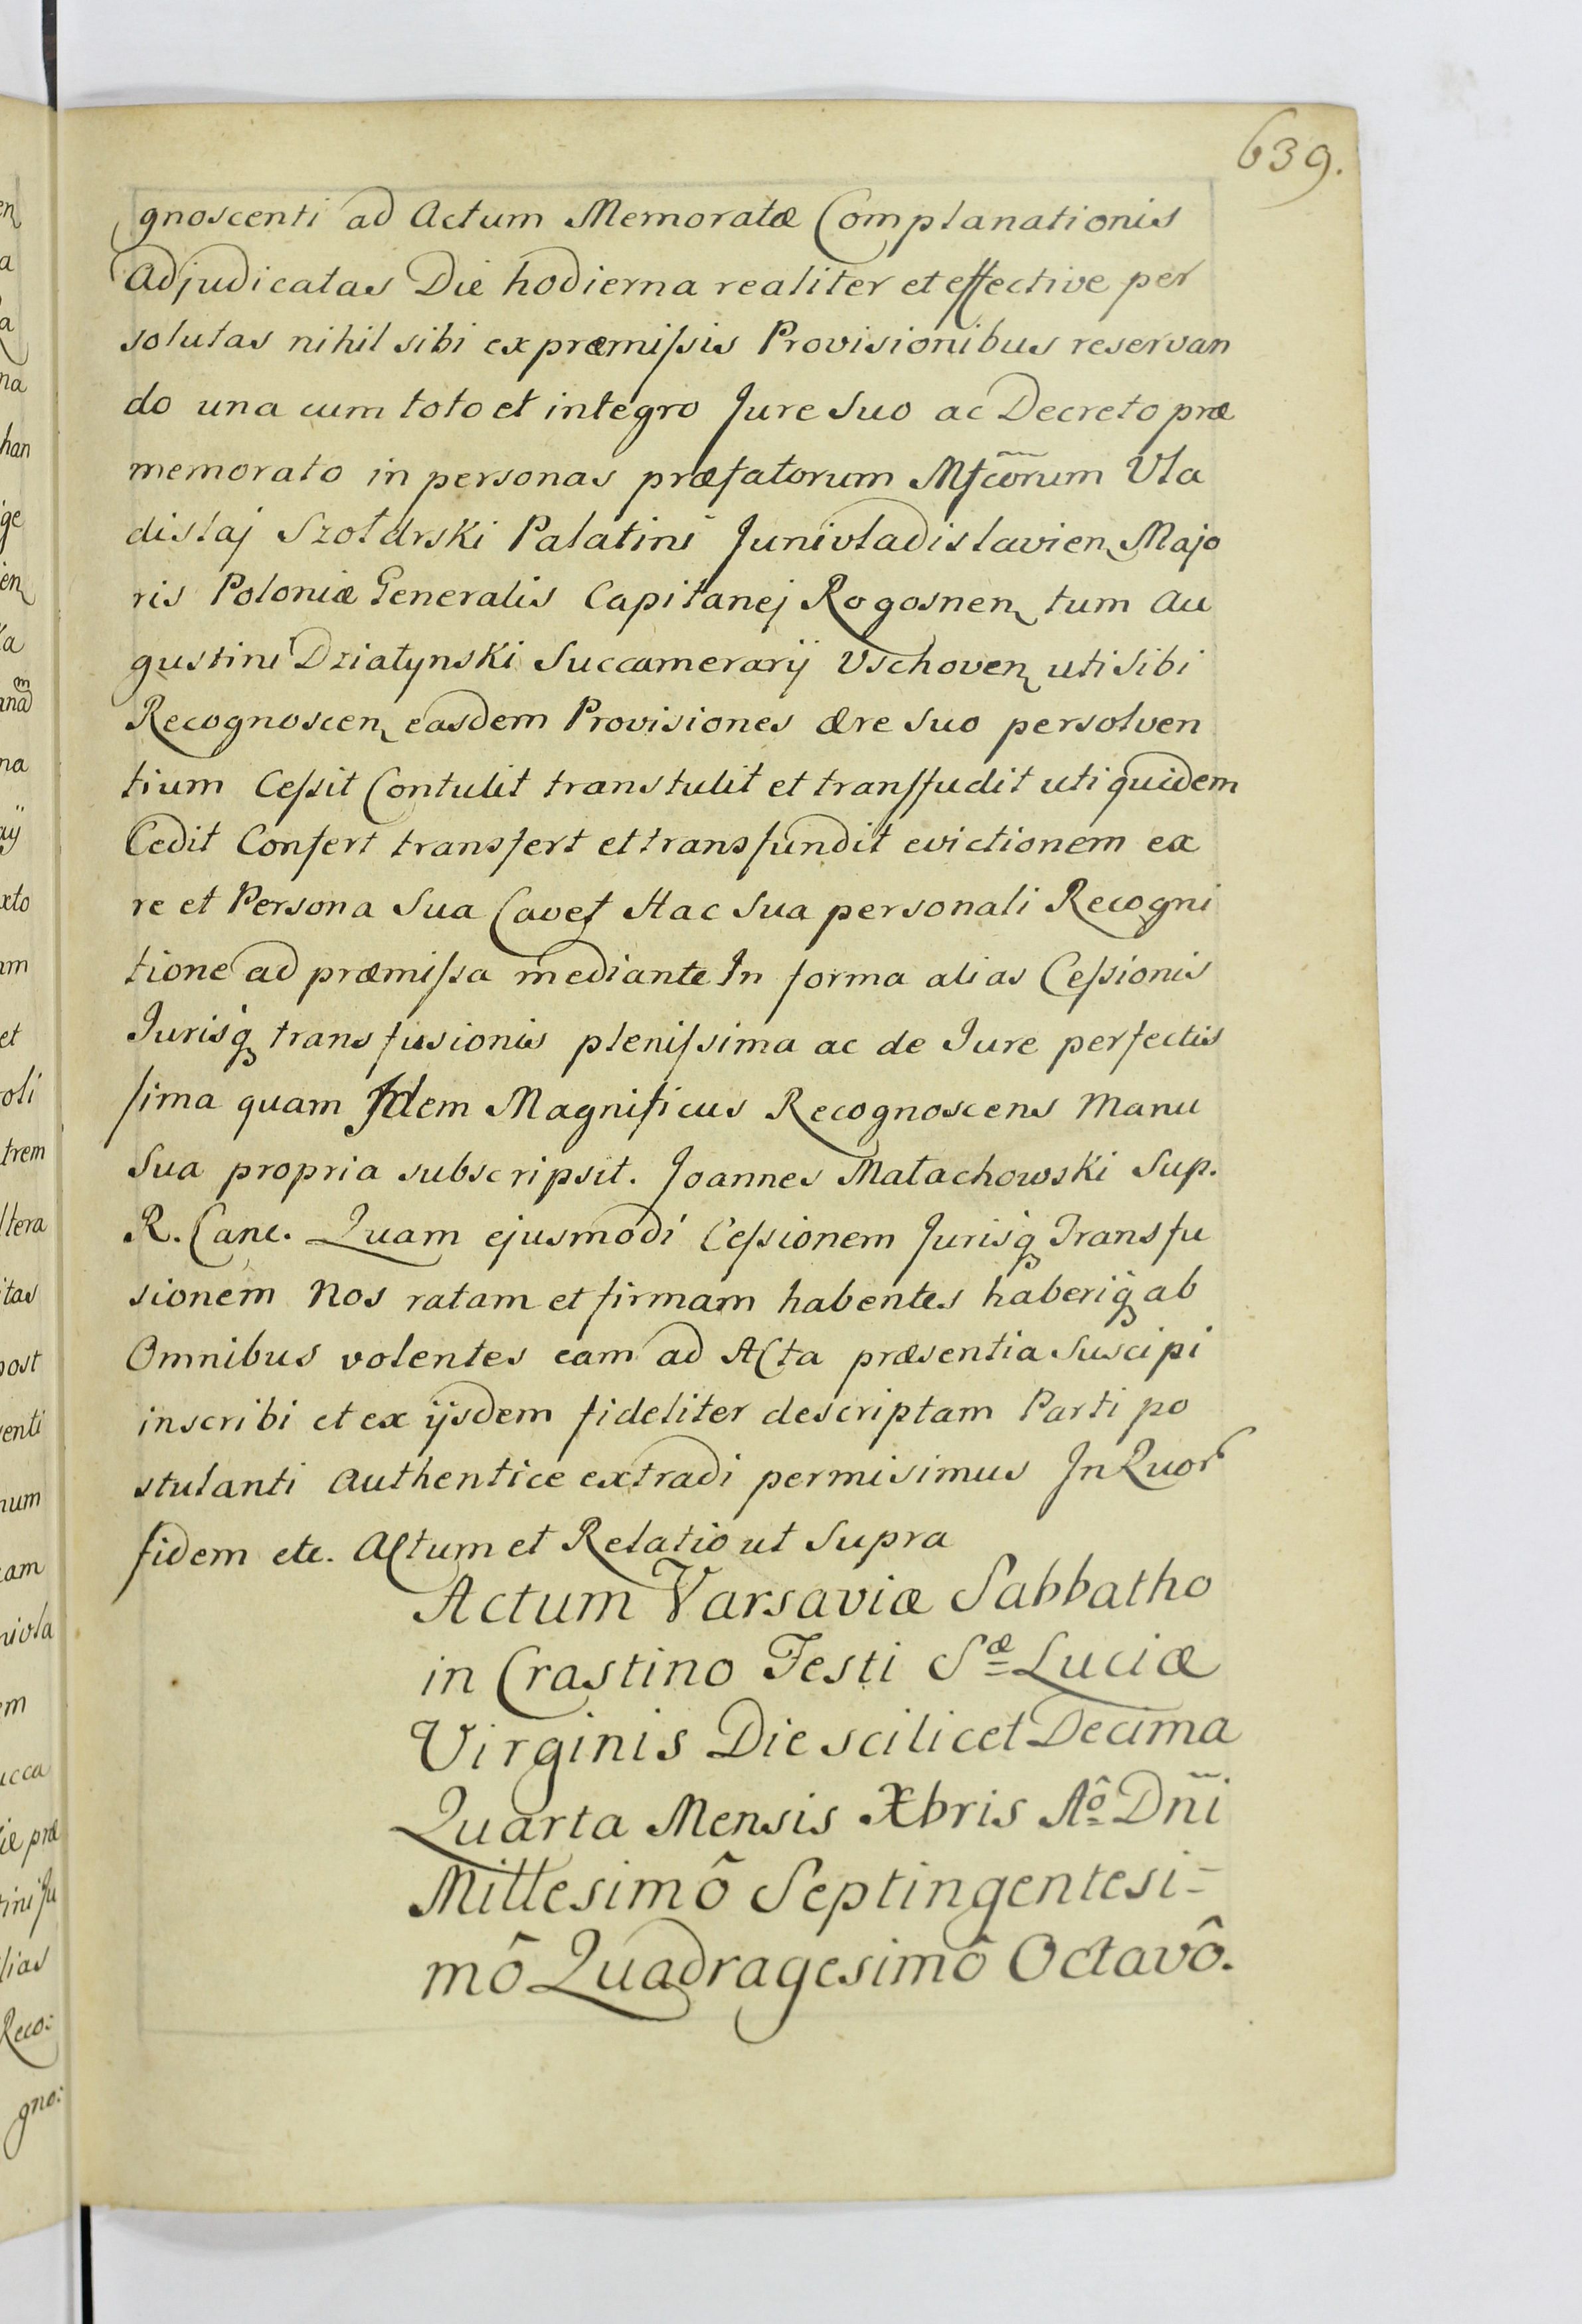 639.
gnoscenti ad Actum Memoratæ Complanationis
Adjudicatas Die hodierna realiter et effective per
solutas nihil sibi ex præmissis Provisionibus reservan
do una cum toto et integro Jure Suo ac Decreto præ
memorato in personas præfatorum Mfcõrum Vla
dislaj Szołdrski Palatini Junivladislavien Majo
ris Poloniæ Generalis Capitanej Rogosnen tum Au
gustini Działynski Succamerarij Vschoven uti Sibi
Recognoscen easdem Provisiones ære Suo persolven
tium Cessit Contulit transtulit et transfudit uti quidem
Cedit Confert transfert et transfundit evictionem ex
re et Persona Sua Cavet Hac Sua personali Recogni
tione ad præmissa mediante In forma alias Cessionis
Jurisq transfusionis plenissima ac de Jure perfectis
sima quam Idem Magnificus Recognoscens Manu
Sua propria subscripsit. Joannes Małachowski Sup.
R. Canc. Quam ejusmodi Cessionem Jurisq Transfu
sionem Nos ratam et firmam habentes haberiq ab
Omnibus volentes eam ad Acta præsentia Suscipi
inscribi et ex ijsdem fideliter descriptam Parti po
stulanti Authentice extradi permisimus In Quor
fidem etc. Actum et Relatio ut Supra
Actum Varsaviæ Sabbatho
in Crastino Festi Sæ Luciæ
Virginis Die scilicet Decima
Quarta Mensis Xbris Aô Dñi
Millesimô Septingentesi=
mô Quadragesimô Octavô.